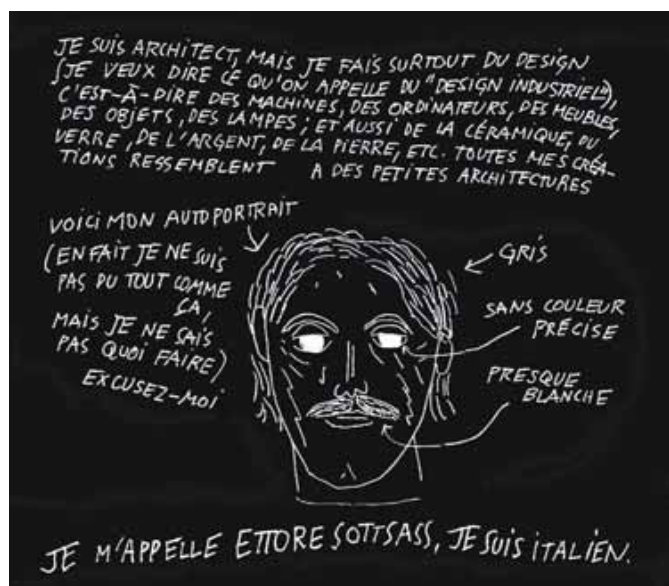 JE SUIS ARCHITECT, MAIS JE FAIS SURTOUT DU DESIGN
(JE VEUX DIRE CE QU'ON APPELLE DU "DESIGN INDUSTRIEL"),
C'EST-À-DIRE DES MACHINES, DES ORDINATEURS, DES MEUBLES,
DES OBJETS, DES LAMPES; ET AUSSI DE LA CÉRAMIQUE, DU
VERRE, DE L'ARGENT, DE LA PIERRE, ETC. TOUTES MES CRÉA-
TIONS RESSEMBLENT A DES PETITES ARCHITECTURES
VOICI MON AUTOPORTRAIT
(EN FAIT JE NE SUIS
PAS DU TOUT COMME
ÇA,
MAIS JE NE SAIS
PAS QUOI FAIRE)
EXCUSEZ-MOI
GRIS
SANS COULEUR
PRÉCISE
PRESQUE
BLANCHE
JE M'APPELLE ETTORE SOTTSASS, JE SUIS ITALIEN.